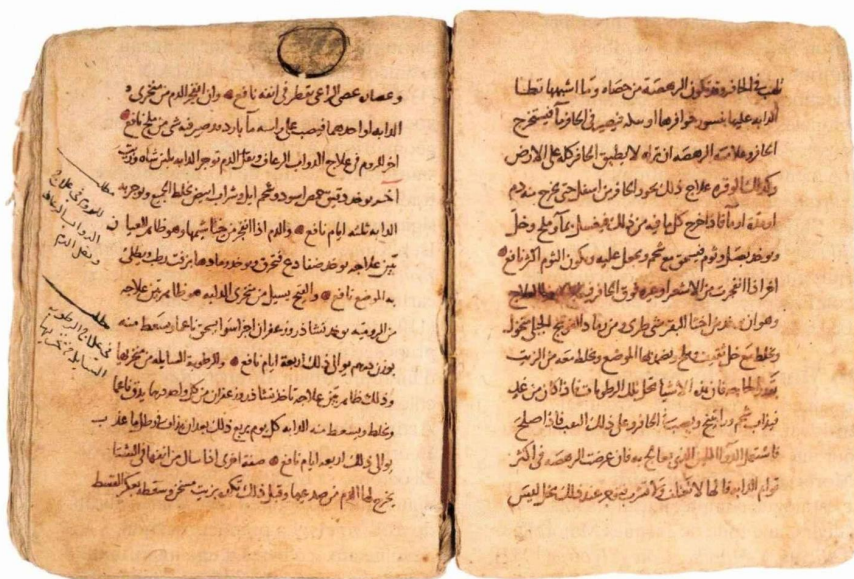 تلحب في الحافر وقد تكون الرهصة من حصاه وما اشبهها تطا
الدابه عليها بنسور حوافرها او سله فيصير في الحافر مآ فيستخرج
الحافر وعلامة الرهصه ان تراه لا يطبق الحافر كله على الارض
وكذلك الوقره علاج ذلك يحود الحافر من اسفل حتى يخرج منه دم
او مدة او مآ فاذا خرج كل ما فيه من ذلك فيغسل بمآ وملح وخل
ويوخد بصل وثوم فيسحق مع شحم ويحمل عليه ويكون الثوم اكثر نافع
اخر اذا انفجرت من الاشعر او غيره فوق الحافر
وهو ان يوخد من اخثا البقر شي طري ومن رماد
ويخلط مع خل ثقيف وملح ويضمد بها الموضع ويخلط معه من الزيت
بقدر الحاجه فان هذه الاشيا تحلل تلك الرطوبات فاذا كان من غد
فيذاب شحم وزرنيخ ويصب في الحافر وعلى ذلك النقب فاذا صلح
فاستعمل الدوآ اللين الذي يعالج به فان عرضت الرهصه في اكثر
قوام الدابه فانها لا تتخلف عند ذلك بخل ليس
وعصاره عصى الراعي يقطر في انفه نافع وان انفجر الدم من منخرى
الدابه او احدهما فيصب على راسه مآ بارد وقد صير فيه شي من ملح نافع
اخر للروم في علاج الدواب الرعاف ونقل الدم توجر الدابه بلبن شاه وزيت
اخر يوخد وقيتين سمسم اسود وشحم ايل وشراب ابيض يخلط الجميع ويوجر به
الدابه ثلثه ايام نافع والدم اذا انفجر من خياشيمها وهو ظاهر للعيان
تبين علاجه يوخد ضفادع فتحرق ويوخد رمادها بزفت رطب ويطلى
به الموضع نافع والقيح يسيل من منخرى الدابه هو ظاهر تبين علاجه
من الروميه يوخد نشا وزعفران اجزا سوا يسحق ناعما ويسعط منه
بوزن درهم يوالى ذلك اربعة ايام نافع والرطوبة السايله من منخرها
وذلك ظاهر تبين علاجه تاخذ نشا وزعفران من كل واحد درهما يدق ناعما
ويخلط ويسعط منه الدابه كل يوم بربع ذلك بعد ان يذاف في رطل ما عذب
يوالى ذلك اربعة ايام نافع صفة اخرى اذا سال من انفها في الشتا
يخرج لها الدم من صدعيها وقبل ذلك تكمد بزيت مسخن وسعط بعكر القسط
مطلب
للروم في علاج
الدواب الرعاف
ونقل الدم
مطلب
في علاج الرطوبة
السايلة من منخريها